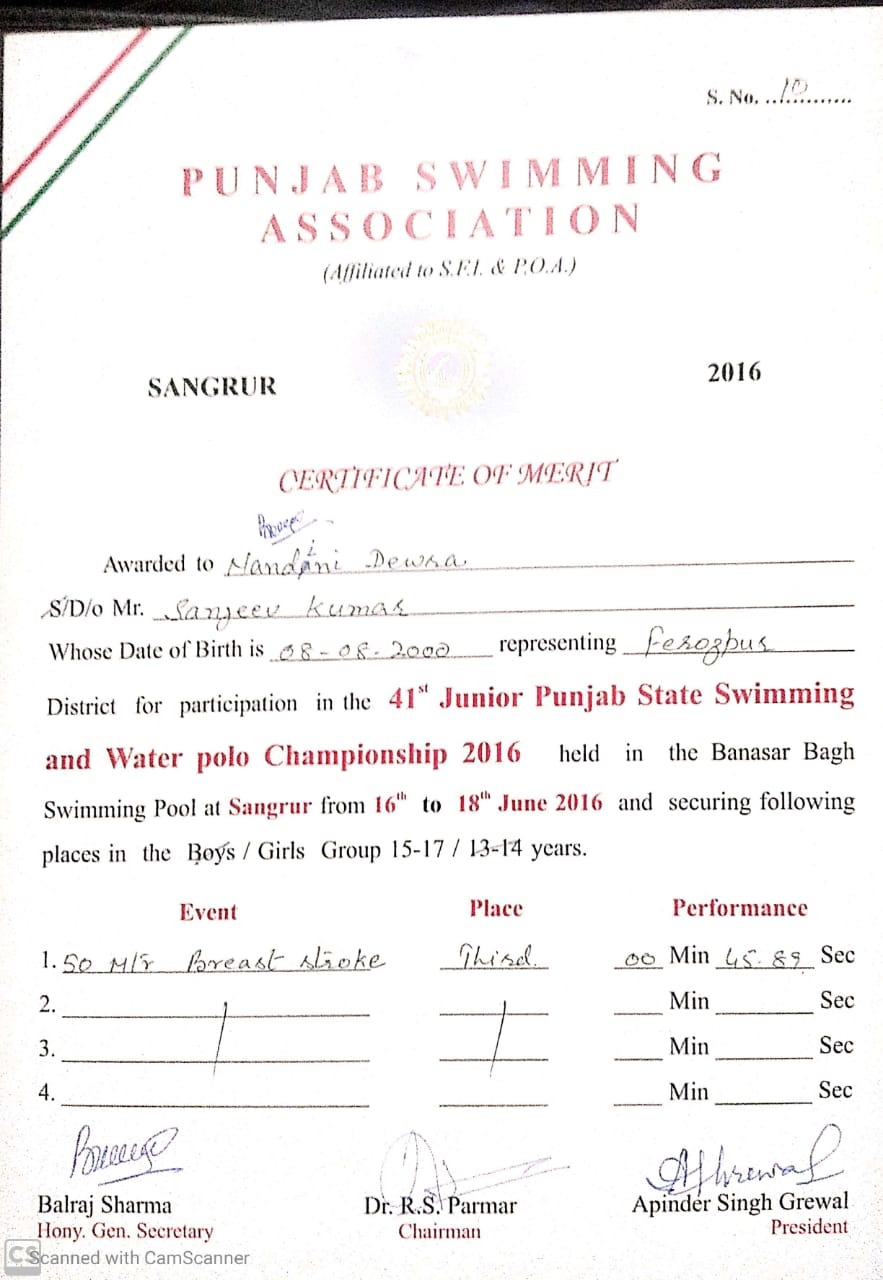 S. No. ..10............
PUNJAB SWIMMING
ASSOCIATION
(Affiliated to S.F.I. & P.O.A.)
SANGRUR 2016
CERTIFICATE OF MERIT
Awarded to Nandini Dewra
S/D/o Mr. Sanjeev Kumar
Whose Date of Birth is 08-08-2000 representing Ferozpur
District for participation in the 41st Junior Punjab State Swimming
and Water polo Championship 2016 held in the Banasar Bagh
Swimming Pool at Sangrur from 16th to 18th June 2016 and securing following
places in the Boys / Girls Group 15-17 / 13-14 years.
Event Place Performance
1. 50 Mtr Breast stroke Third. 00 Min 45.89 Sec
2. Min Sec
3. Min Sec
4. Min Sec
Balraj Sharma Dr. R.S. Parmar Apinder Singh Grewal
Hony. Gen. Secretary Chairman President
CS Scanned with CamScanner